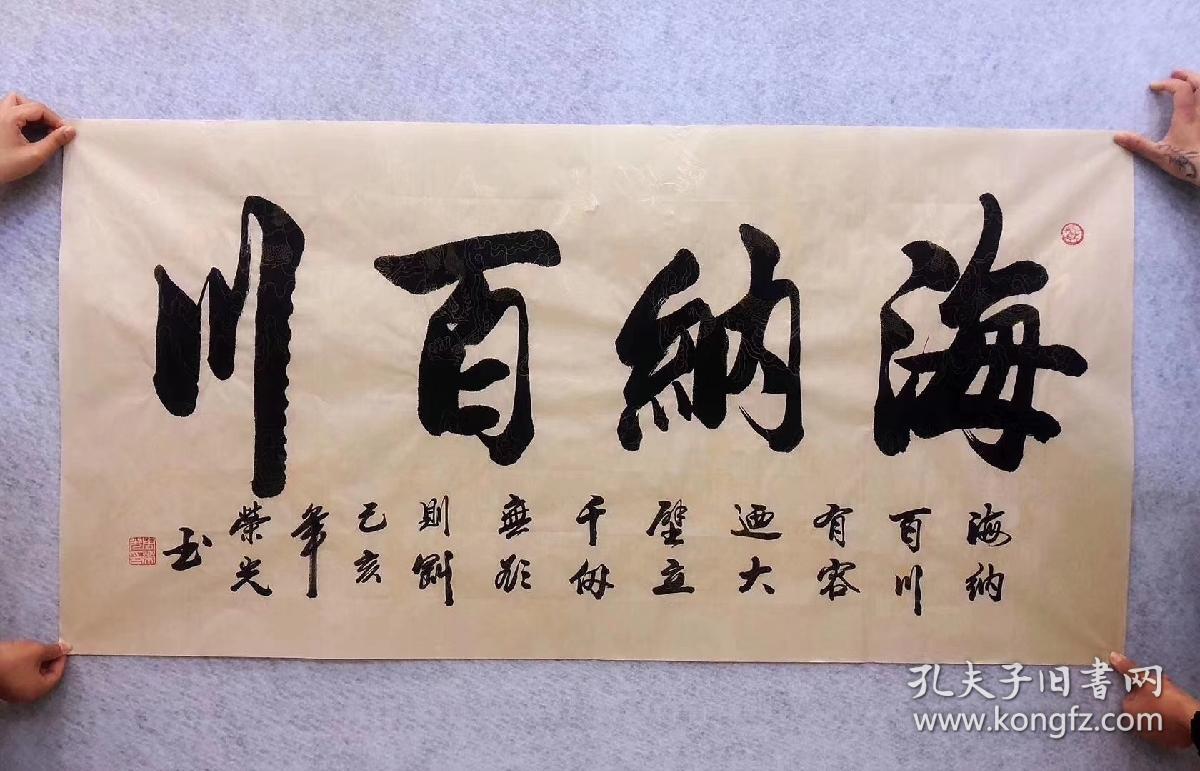 海納百川
海納
百川
有容
迺大
壁立
千仞
無欲
則剛
己亥
年
榮光
书
孔夫子旧書网
www.kongfz.com